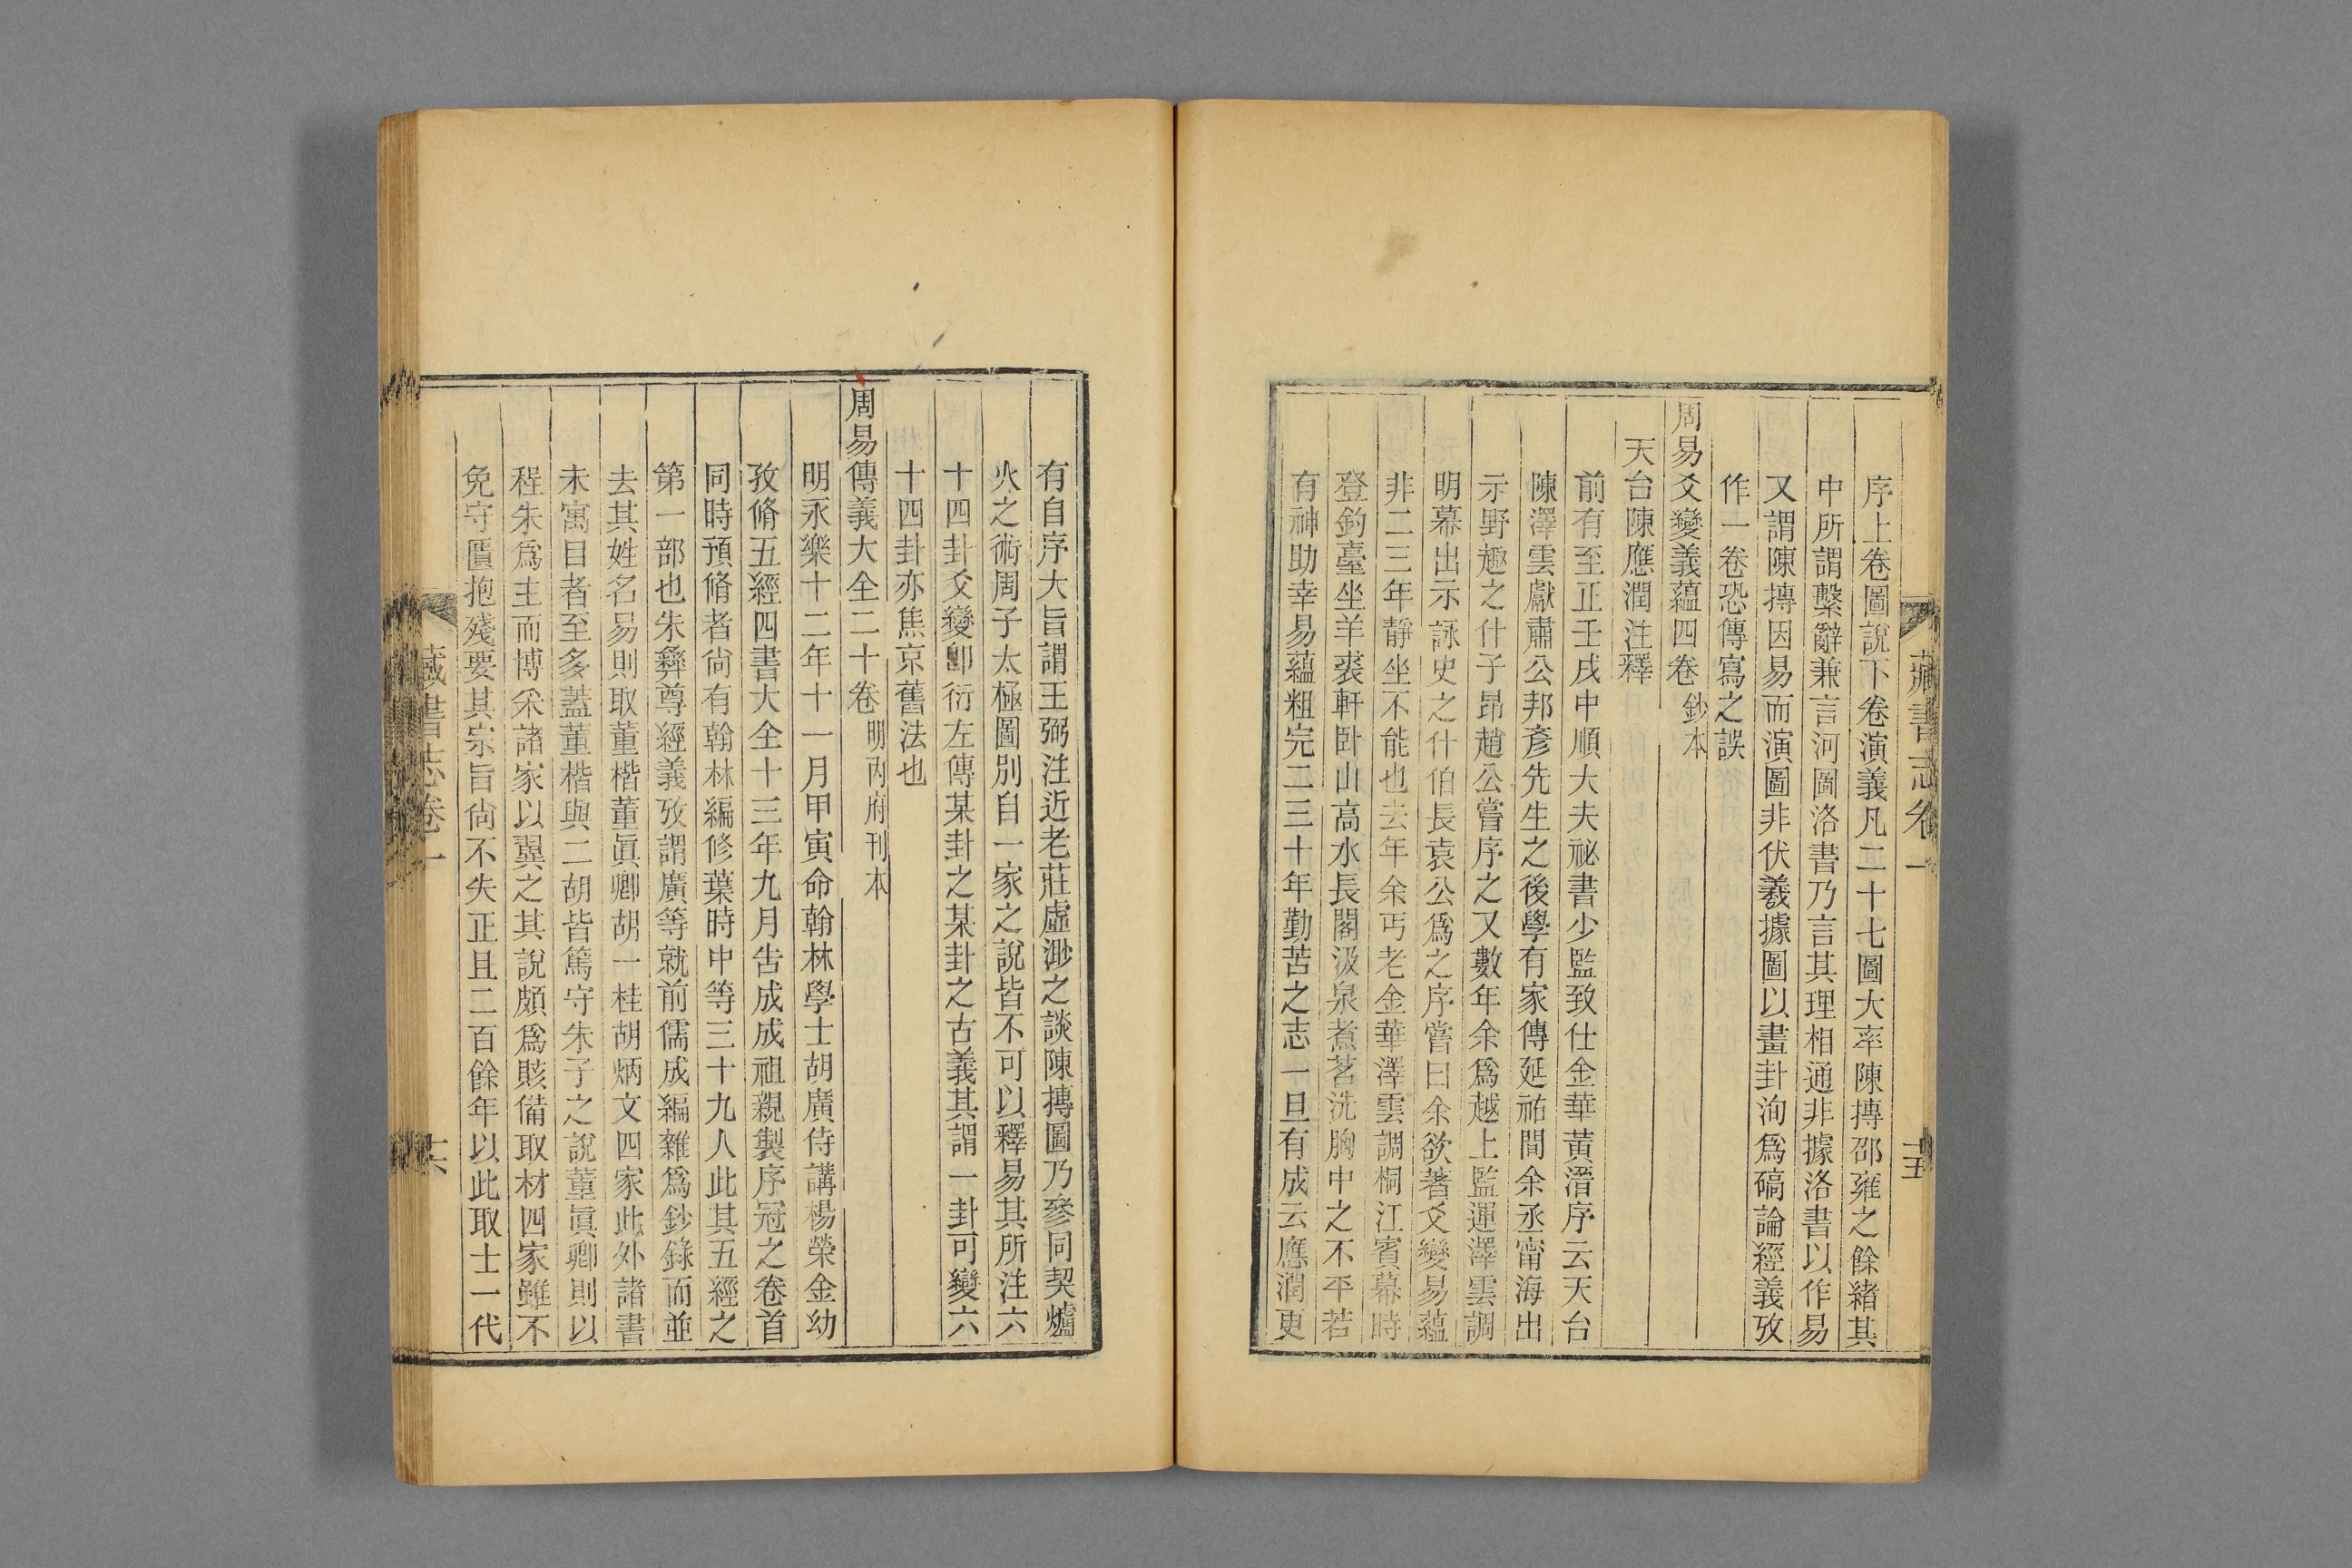 藏書志卷一
十五
序上卷圖說下卷演義凡二十七圖大率陳摶邵雍之餘緒其
中所謂繫辭兼言河圖洛書乃言其理相通非據洛書以作易
又謂陳摶因易而演圖非伏羲據圖以畫卦洵爲碻論經義攷
作一卷恐傳寫之誤
周易爻變義蘊四卷鈔本
天台陳應潤注釋
前有至正壬戌中順大夫祕書少監致仕金華黃溍序云天台
陳澤雲獻肅公邦彥先生之後學有家傳延祐間余丞甯海出
示野趣之什子昂趙公嘗序之又數年余爲越上監運澤雲調
明幕出示詠史之什伯長袁公爲之序嘗曰余欲著爻變易蘊
非二三年靜坐不能也去年余丐老金華澤雲調桐江賓幕時
登釣臺坐羊裘軒卧山高水長閣汲泉煮茗洗胸中之不平若
有神助幸易蘊粗完二三十年勤苦之志一旦有成云應潤更
有自序大旨謂王弼注近老莊虛渺之談陳摶圖乃參同契爐
火之術周子太極圖別自一家之說皆不可以釋易其所注六
十四卦爻變卽衍左傳某卦之某卦之古義其謂一卦可變六
十四卦亦焦京舊法也
周易傳義大全二十卷明內府刊本
明永樂十二年十一月甲寅命翰林學士胡廣侍講楊榮金幼
孜脩五經四書大全十三年九月告成成祖親製序冠之卷首
同時預脩者尙有翰林編修葉時中等三十九人此其五經之
第一部也朱彝尊經義攷謂廣等就前儒成編雜爲鈔錄而並
去其姓名易則取董楷董眞卿胡一桂胡炳文四家此外諸書
未寓目者至多蓋董楷與二胡皆篤守朱子之說董眞卿則以
程朱爲主而博采諸家以翼之其說頗爲賅備取材四家雖不
免守匱抱殘要其宗旨尙不失正且二百餘年以此取士一代
藏書志卷一
十六